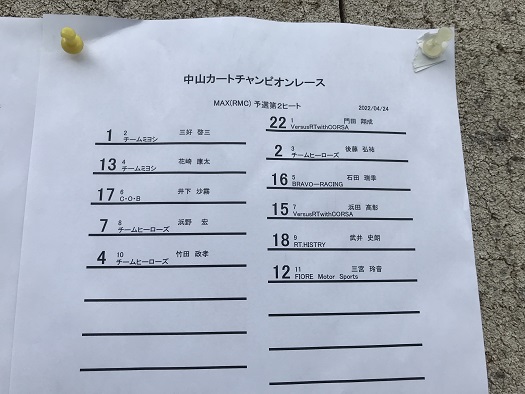 中山カートチャンピオンレース
MAX(RMC) 予選第2ヒート
2022/04/24
22 1 門田 翔成
VersusRTwithCORSA
1 2 三好 啓三
チームミヨシ
2 3 後藤 弘祐
チームヒーローズ
13 4 花崎 康太
チームミヨシ
16 5 石田 瑞季
BRAVO-RACING
17 6 井下 沙霧
C・O・B
15 7 浜田 高彰
VersusRTwithCORSA
7 8 浜野 宏
チームヒーローズ
18 9 武井 史朗
RT.HISTRY
4 10 竹田 政孝
チームヒーローズ
12 11 三宮 玲音
FIORE Motor Sports